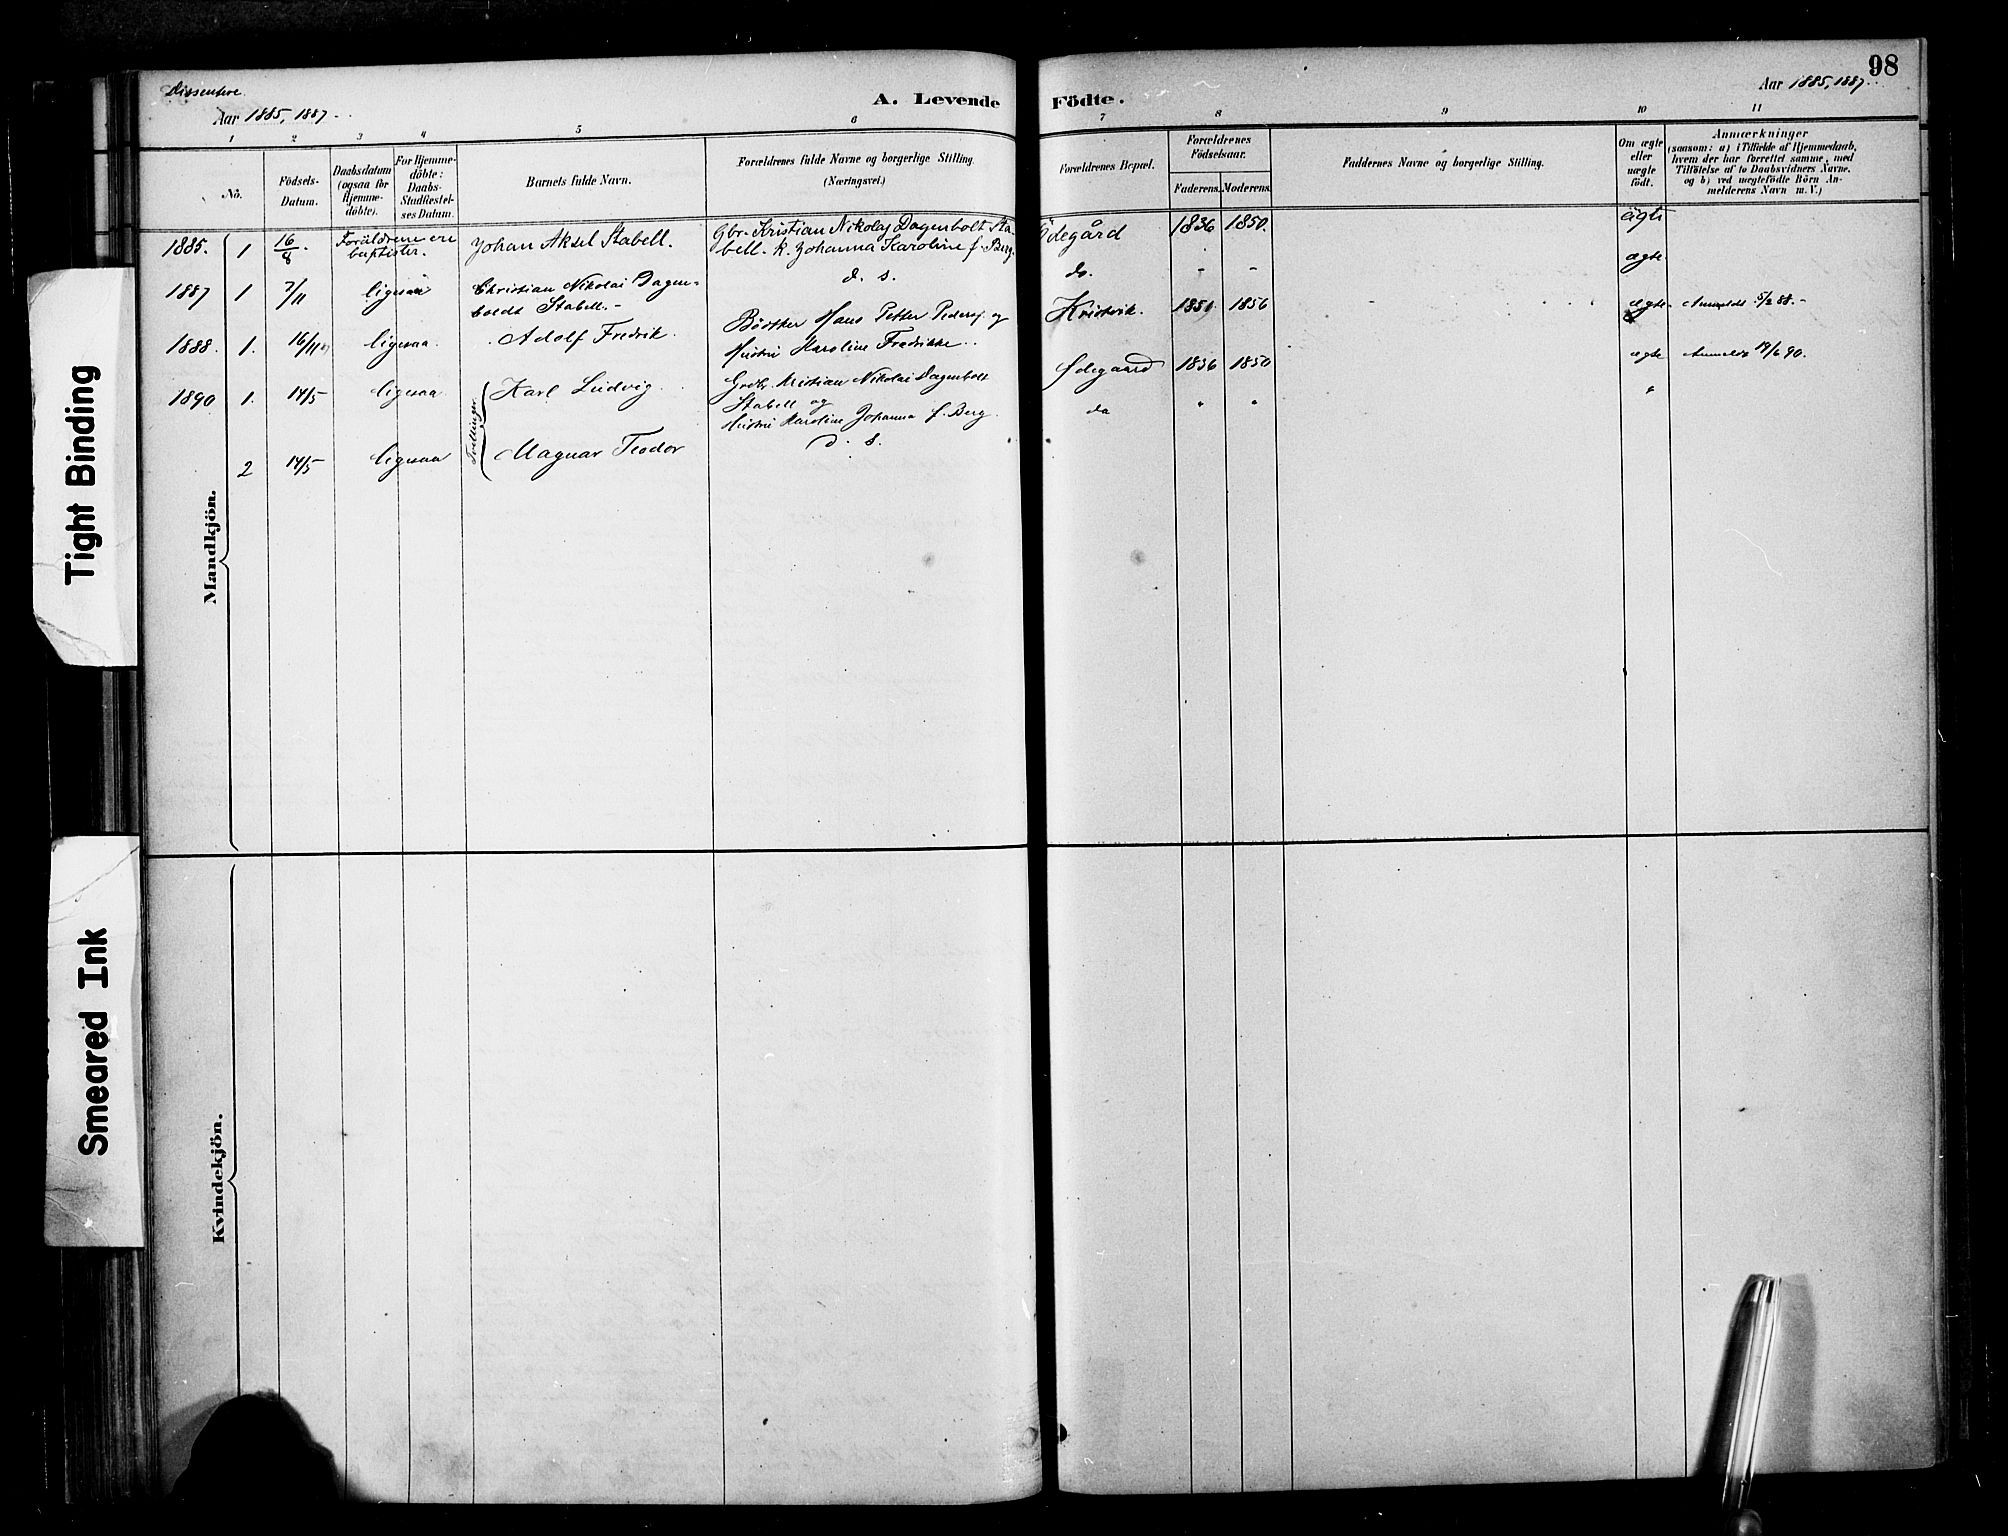 Dissentere.
Aar 1885, 1887.
A. Levende Födte.
98
Aar 1885, 1887.
1 2 3 4 5 6 7 8 9 10 11
No.
Födsels-Datum.
Daabsdatum (ogsaa for Hjemme-döbte).
For Hjemme-döbte: Daabs-Stadfæstel-ses Datum.
Barnets fulde Navn.
Forældrenes fulde Navne og borgerlige Stilling. (Næringsvei.)
Forældrenes Bopæl.
Forældrenes Födselsaar.
Faderens. Moderens.
Faddernes Navne og borgerlige Stilling.
Om ægte eller uægte födt.
Anmærkninger
(saasom: a) i Tilfælde af Hjemmedaab, hvem der har forrettet samme, med Tilföielse af to Daabsvidners Navne, og b) ved uægtefödte Börn An-melderens Navn m. V.)
1885. 1 16/8. Forældrene ere baptister. Johan Aksel Stabell. Gbr. Kristian Nikolaj Dagenbolt Sta-bell. k. Johanna Karoline f. Berg. Ödegård 1836 1850. ägte
1887 1 7/11 ligesaa Christian Nikolai Dagen-boldt Stabell.- d. s. do. - - ægte
1888. 1. 16/11 ligesaa. Adolf Fredrik. Bödker Hans Petter Peders. og Hustru Karoline Fredrikke. Kristvik. 1851 1856 ægte Anmeldt 5/2 88.-
1890 1. 14/5 ligesaa Tvillinger Karl Ludvig. Grdbr. Kristian Nikolai Dagenbolt Stabell og Hustru Karoline Johanna f. Berg. Ødegaard 1836 1850 ægte Anmeldt 19/6 90.
2 14/5 ligesaa Magnar Teodor d. s. do " " "
Mandkjön.
Kvindekjön.
Tight Binding
Smeared Ink